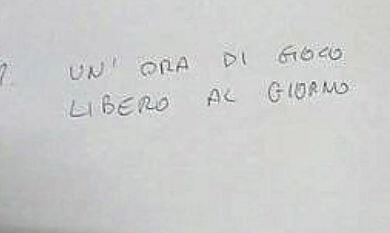 UN' ORA DI GIOCO
LIBERO AL GIORNO